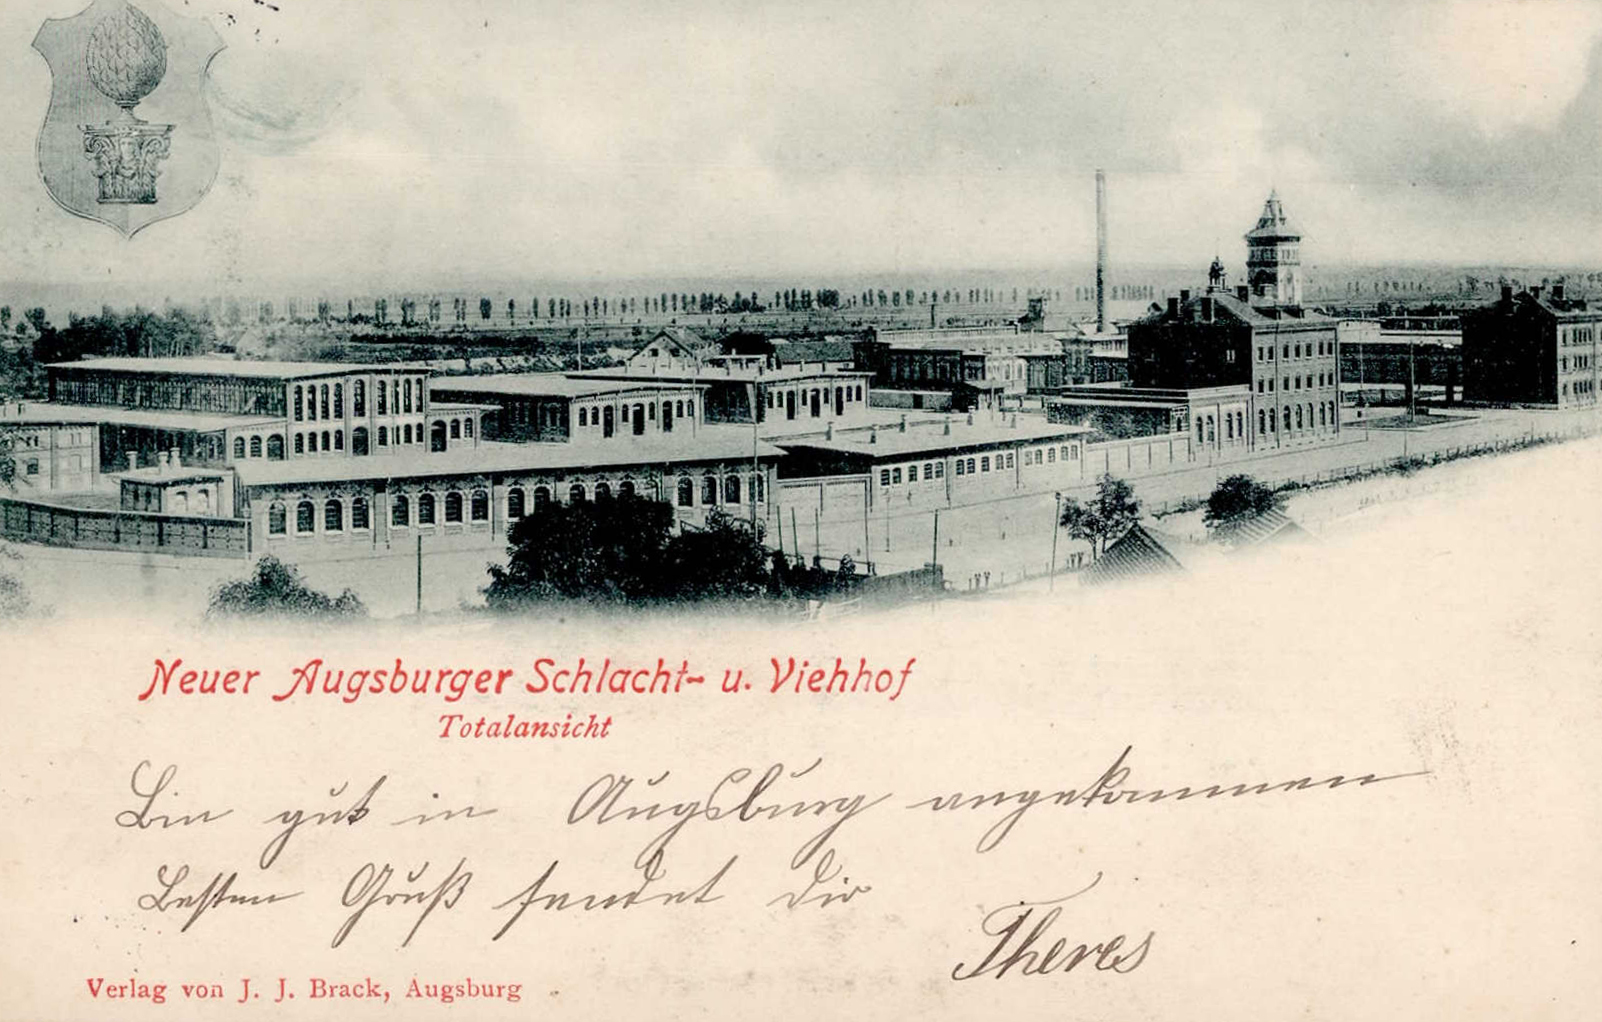 Neuer Augsburger Schlacht- u. Viehhof
Totalansicht
Bin gut in Augsburg angekommen
Besten Gruß sendet dir
Theres
Verlag von J. J. Brack, Augsburg